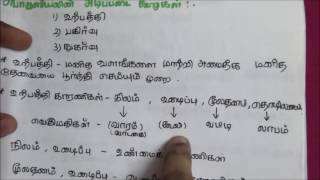 பொருளியலின் அடிப்படை கூறுகள் :-
1) உற்பத்தி
2) பகிர்வு
3) நுகர்வு
* உற்பத்தி - மனித வளங்களை மாற்றி அமைத்து மனித
தேவையை பூர்த்தி செய்யும்
* உற்பத்தி காரணிகள் - நிலம் , உழைப்பு , மூலதனம் ,
வெகுமதிகள் - (வாரம் / வாடகை) (கூலி) வட்டி லாபம்
நிலம் , உழைப்பு - உண்மை
மூலதனம் , அமைப்பு -